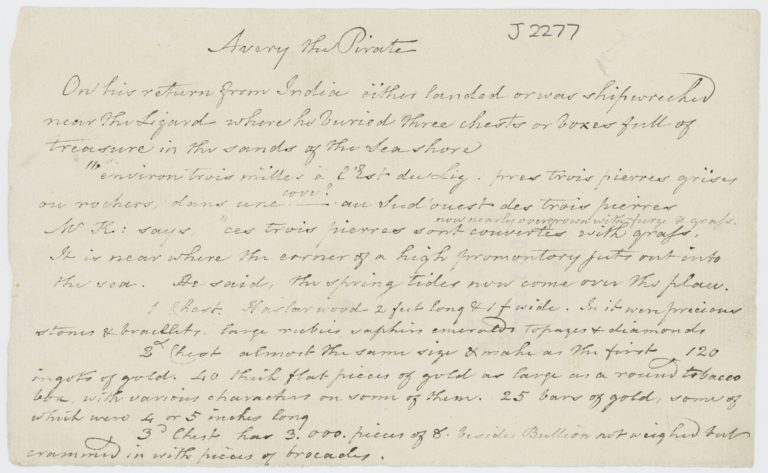 J 2277
Avery the Pirate
On his return from India either landed or was shipwrecked
near the Lizard where he buried three chests or boxes full of
treasure in the sands of the Sea shore
"environ trois milles à l'Est du Lig. pres trois pierres grises
ou rochers, dans une cove? au Sud'ouest des trois pierres
now nearly overgrown with furze & grass.
Mr K: says, "ces trois pierres sont couvertes with grass,
It is near where the corner of a high promontory juts out into
the sea. He said, the spring tides now come over the place.
1 Chest. Haslar wood 2 feet long & 1 f wide. In it were precious
stones & bracelets. large rubies saphirs emeralds topazes & diamonds
2d Chest almost the same size & make as the first. 120
ingots of gold. 40 thick flat pieces of gold as large as a round tobacco
box, with various characters on some of them. 25 bars of gold, some of
which were 4 or 5 inches long
3d Chest has 3.000. pieces of 8. besides Bullion not weighed but
crammed in with pieces of brocades.